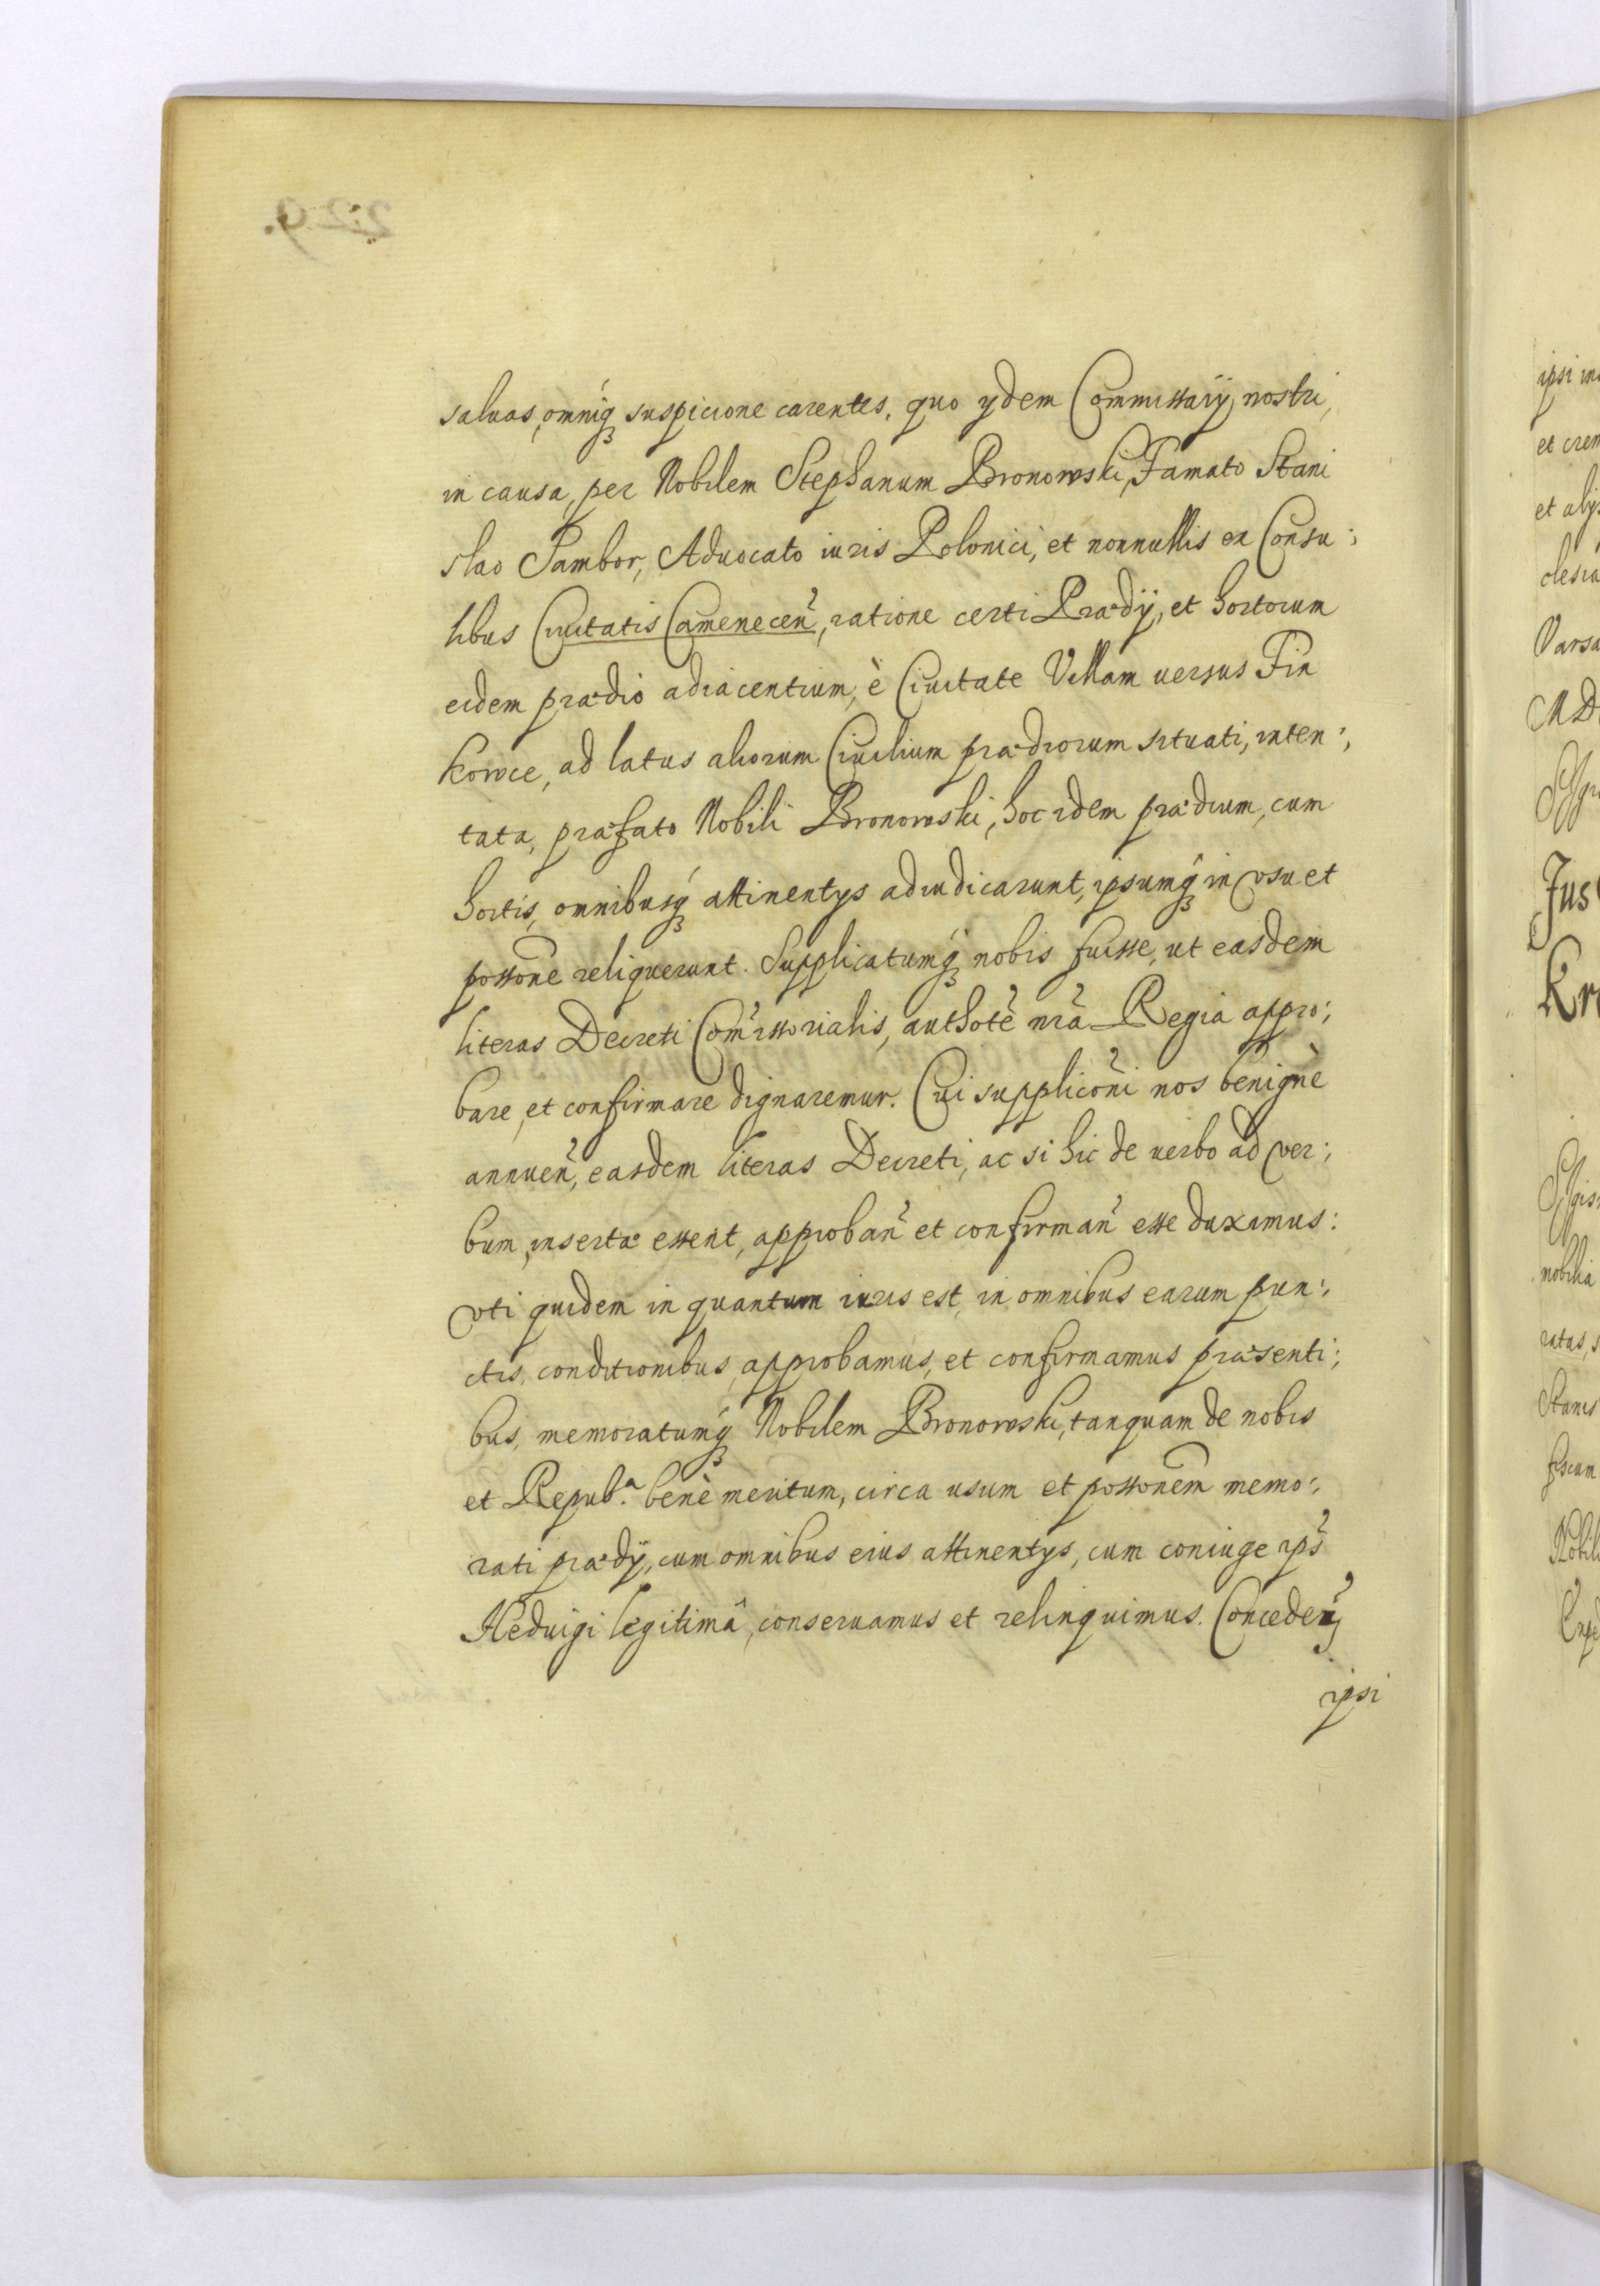 saluas, omniq́ʒ suspicione carentes, quo ydem Commissarÿ nostri,
in causa, per Nobilem Stephanum Bronowski, Famato Stani
slao Sambor, Aduocato iuris Polonici, et nonnullis ex Consu:,
libus Ciuitatis Camenecen̉, ratione certi Prædÿ, et hortorum
eidem prædio adiacentium, è Ciuitate Villam uersus Fin
kowce, ad latus aliorum Ciuilium prædiorum situati, inten:,
tata, præfato Nobili Bronowski, hoc idem prædium, cum
hortis, omnibusq́ʒ attinentys adiudicarunt, ipsumq́ʒ in vsu et
possone reliquerunt. Supplicatumq́ʒ nobis fuisse, ut easdem
literas Decreti Com̉issorialis, authotẻ nrả Regia appro:,
bare, et confirmare dignaremur. Cui supplicon̉i nos benignè
annuen̉, easdem literas Decreti, ac si hic de uerbo ad ver:,
bum, insertæ essent, approban̉ et confirman̉ esse duximus:
vti quidem in quantum iuris est, in omnibus earum pun:,
ctis, conditionibus, approbamus, et confirmamus præsenti:,
bus, memoratumq́ʒ Nobilem Bronowski, tanquam de nobis
et Repub.ᵃ benè meritum, circa usum et possonem memo:,
rati prædÿ, cum omnibus eius attinentys, cum coniuge ips̉
Heduigi legitimâ, conseruamus et relinquimus. Conceden̉
ipsi